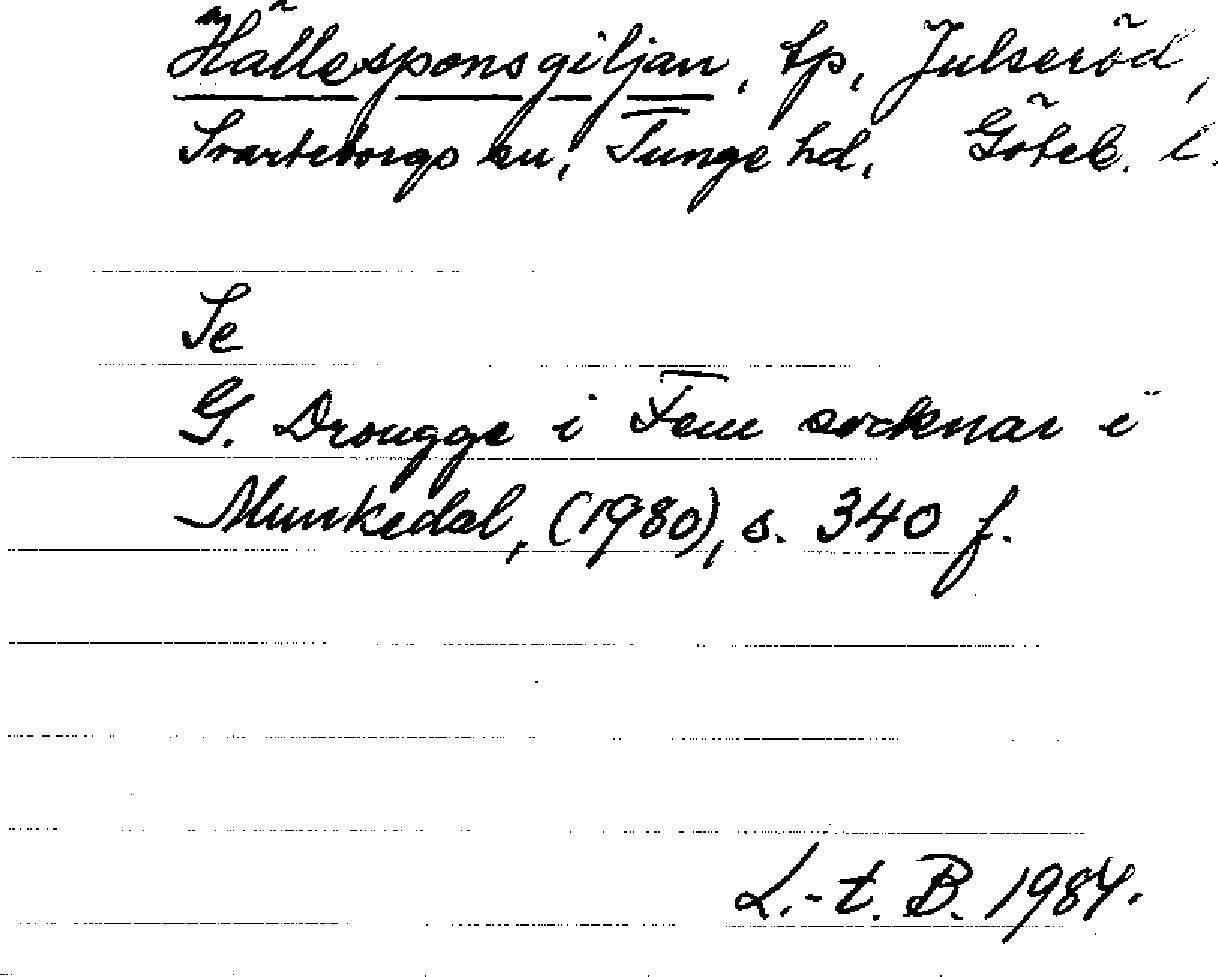 Hällesponsgiljan, tp, Julseröd,
Svarteborgs sn, Tunge hd, Göteb. l.
Se
G. Drougge i Fem socknar i
Munkedal, (1980), s. 340 f.
L.-t. B. 1984.